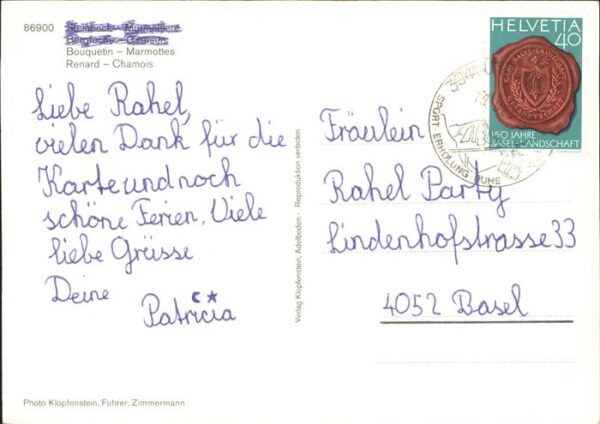 86900
Steinbock – Murmeltiere
Bergfuchs – Gemsen
Bouquetin – Marmottes
Renard – Chamois
Liebe Rahel,
vielen Dank für die
Karte und noch
schöne Ferien. Viele
liebe Grüsse
Deine
Patricia
Verlag Klopfenstein, Adelboden - Reproduktion verboten
Photo Klopfenstein, Fuhrer, Zimmermann
HELVETIA
40
150 JAHRE
BASEL-LANDSCHAFT
SPORT ERHOLUNG RUHE
Fräulein
Rahel Party
Lindenhofstrasse 33
4052 Basel